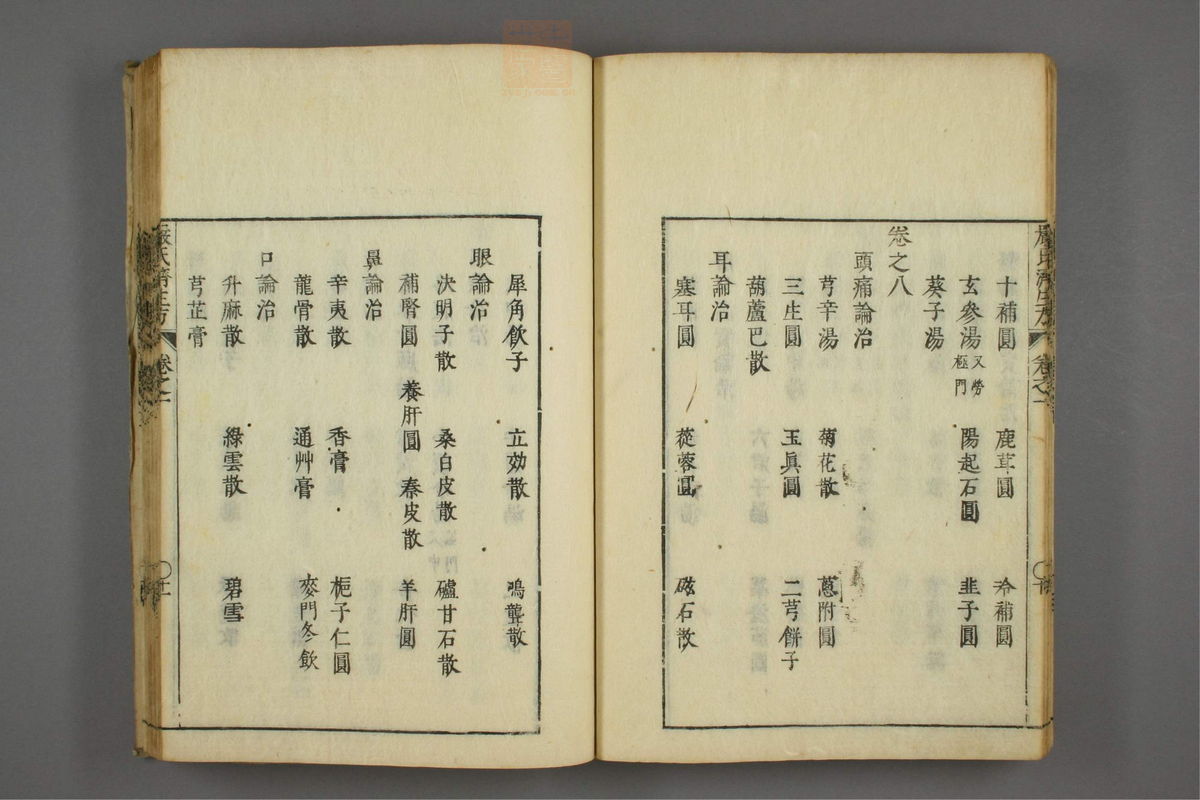 十補圓 鹿茸圓 冷補圓
玄參湯 又勞極門 陽起石圓 韭子圓
葵子湯
卷之八
頭痛論治
芎辛湯 菊花散 蔥附圓
三生圓 玉眞圓 二芎餅子
葫蘆巴散
耳論治
塞耳圓 蓯蓉圓 磁石散
犀角飲子 立効散 鳴聾散
眼論治
決明子散 桑白皮散 爐甘石散
補腎圓 養肝圓 秦皮散 羊肝圓
鼻論治
辛夷散 香膏 梔子仁圓
龍骨散 通艸膏 麥門冬飲
口論治
升麻散 綠雲散 碧雪
芎芷膏
嚴氏濟生方 卷之一